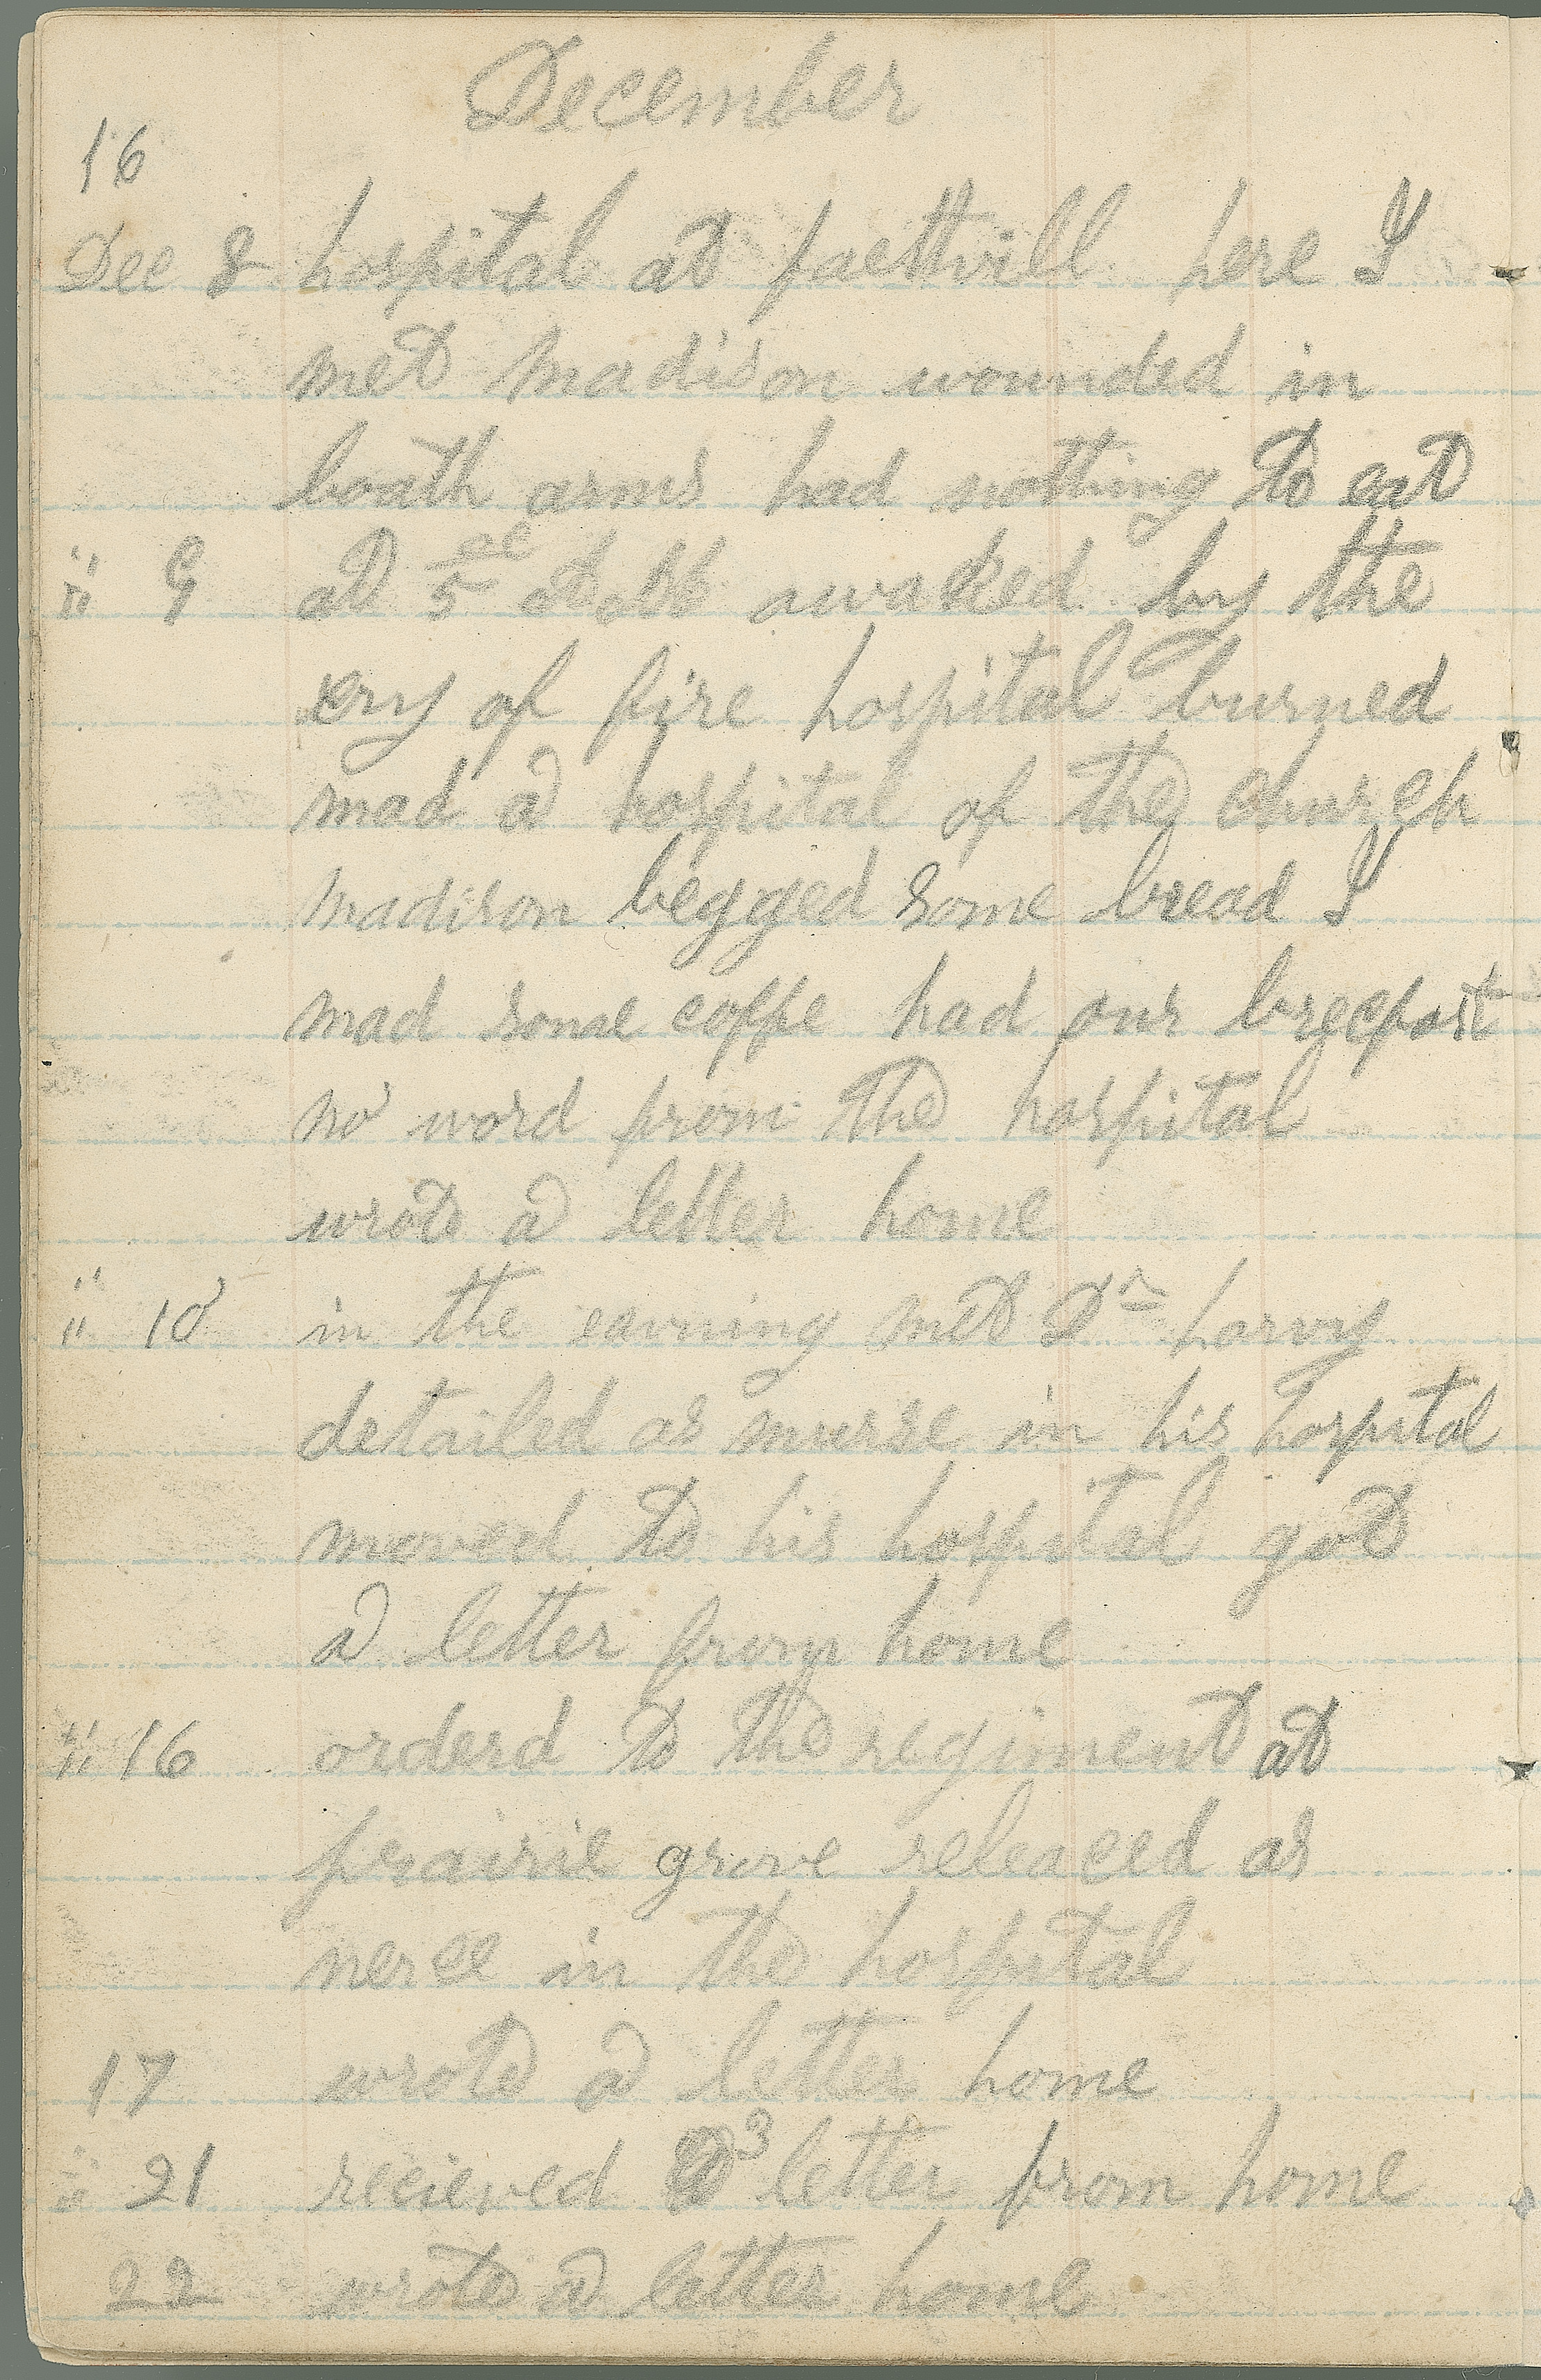 December
16
Dec 8 hospital at faettvill here I
met Madison wounded in
boath arms had notting to eat
" 9 at 5 awaked by the
cry of fire hospital burned
mad a hospital of the church
Madison begged some bread I
mad some coffe had our brecfast
no word from the hospital
wrote a letter home
" 10 in the eavning met Dr harvy
detailed as nurse in his hospital
moved to his hospital got
a letter from home
" 16 orderd to the regiment at
prairie grove releaced as
nerce in the hospital
17 wrote a letter home
" 21 recieved 3 letter from home
22 wrote a letter home